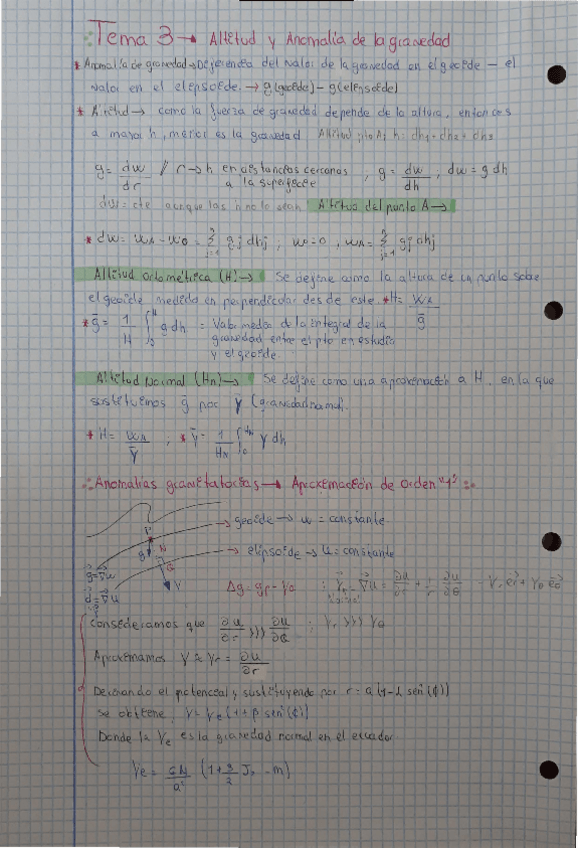 ∴ Tema 3 → Altitud y Anomalía de la gravedad
* Anomalía de gravedad → Diferencia del valor de la gravedad en el geoide – el
valor en el elipsoide. → g(geoide) – g(elipsoide)
* Altitud → como la fuerza de gravedad depende de la altura, entonces
a mayor h, menor es la gravedad Altitud pto A; h = dh₁ + dh₂ + dh₃
g = dw/dr // r → h en distancias cercanas a la superficie , g = dw/dh ; dw = g dh
dw = cte aunque las h no lo sean Altitud del punto A →
* dw = wA – w0 = Σ gj dhj ; w0 = 0 , wA = Σ gj dhj
Altitud ortométrica (H) → Se define como la altura de un punto sobre
el geoide medido en perpendicular desde este. * H = WA/ḡ
* ḡ = 1/H ∫₀ᴴ g dh = Valor medio de la integral de la
gravedad entre el pto en estudio
y el geoide.
Altitud normal (HN) → Se define como una aproximación a H, en la que
sustituimos ḡ por γ̄ (gravedad normal).
* H = WA/γ̄ ; * γ̄ = 1/HN ∫₀ᴴᴺ γ dh
∴ Anomalías gravitatorias → Aproximación de orden "1" :-
P
→ geoide → w = constante
g N
Q
→ elipsoide → U = constante
g⃗ = ∇⃗w
γ
Δg = gP – γQ
Consideramos que ∂u/∂r >>> ∂u/∂θ ; γr >>> γθ
Aproximamos γ ≈ γr = ∂u/∂r
Derivando el potencial y sustituyendo por r = a(1 – λ sen²(φ))
se obtiene, γ = γe (1 + β sen²(φ))
Donde la γe es la gravedad normal en el ecuador
γe = GM/a² (1 + 3/2 J₂ – m)